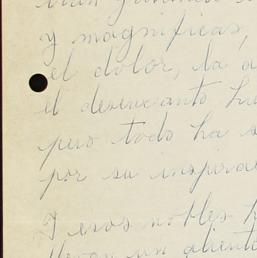 y magníficas,
el dolor, la
el desencanto
pero todo ha
por su inspira
Y esos nobles
llevan un aliento